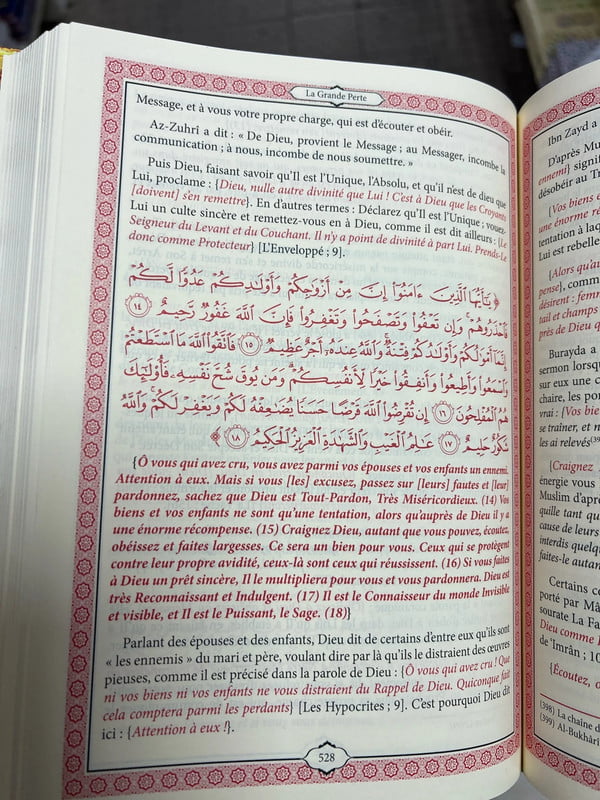 La Grande Perte
Message, et à vous votre propre charge, qui est d'écouter et obéir.
Az-Zuhrî a dit : « De Dieu, provient le Message ; au Messager, incombe la
communication ; à nous, incombe de nous soumettre. »
Puis Dieu, faisant savoir qu'Il est l'Unique, l'Absolu, et qu'il n'est de dieu que
Lui, proclame : {Dieu, nulle autre divinité que Lui ! C'est à Dieu que les Croyants
[doivent] s'en remettre}. En d'autres termes : Déclarez qu'Il est l'Unique ; vouez-
Lui un culte sincère et remettez-vous en à Dieu, comme il est dit ailleurs : {Le
Seigneur du Levant et du Couchant. Il n'y a point de divinité à part Lui. Prends-Le
donc comme Protecteur} [L'Enveloppé ; 9].
﴿ يَٰٓأَيُّهَا ٱلَّذِينَ ءَامَنُوٓا۟ إِنَّ مِنْ أَزْوَٰجِكُمْ وَأَوْلَٰدِكُمْ عَدُوًّا لَّكُمْ
فَٱحْذَرُوهُمْ ۚ وَإِن تَعْفُوا۟ وَتَصْفَحُوا۟ وَتَغْفِرُوا۟ فَإِنَّ ٱللَّهَ غَفُورٌ رَّحِيمٌ ١٤
إِنَّمَآ أَمْوَٰلُكُمْ وَأَوْلَٰدُكُمْ فِتْنَةٌ ۚ وَٱللَّهُ عِندَهُۥٓ أَجْرٌ عَظِيمٌ ١٥ فَٱتَّقُوا۟ ٱللَّهَ مَا ٱسْتَطَعْتُمْ
وَٱسْمَعُوا۟ وَأَطِيعُوا۟ وَأَنفِقُوا۟ خَيْرًا لِّأَنفُسِكُمْ ۗ وَمَن يُوقَ شُحَّ نَفْسِهِۦ فَأُو۟لَٰٓئِكَ
هُمُ ٱلْمُفْلِحُونَ ١٦ إِن تُقْرِضُوا۟ ٱللَّهَ قَرْضًا حَسَنًا يُضَٰعِفْهُ لَكُمْ وَيَغْفِرْ لَكُمْ ۚ وَٱللَّهُ
شَكُورٌ حَلِيمٌ ١٧ عَٰلِمُ ٱلْغَيْبِ وَٱلشَّهَٰدَةِ ٱلْعَزِيزُ ٱلْحَكِيمُ ١٨ ﴾
{Ô vous qui avez cru, vous avez parmi vos épouses et vos enfants un ennemi.
Attention à eux. Mais si vous [les] excusez, passez sur [leurs] fautes et [leur]
pardonnez, sachez que Dieu est Tout-Pardon, Très Miséricordieux. (14) Vos
biens et vos enfants ne sont qu'une tentation, alors qu'auprès de Dieu il y a
une énorme récompense. (15) Craignez Dieu, autant que vous pouvez, écoutez,
obéissez et faites largesses. Ce sera un bien pour vous. Ceux qui se protègent
contre leur propre avidité, ceux-là sont ceux qui réussissent. (16) Si vous faites
à Dieu un prêt sincère, Il le multipliera pour vous et vous pardonnera. Dieu est
très Reconnaissant et Indulgent. (17) Il est le Connaisseur du monde Invisible
et visible, et Il est le Puissant, le Sage. (18)}
Parlant des épouses et des enfants, Dieu dit de certains d'entre eux qu'ils sont
« les ennemis » du mari et père, voulant dire par là qu'ils le distraient des œuvres
pieuses, comme il est précisé dans la parole de Dieu : {Ô vous qui avez cru ! Que
ni vos biens ni vos enfants ne vous distraient du Rappel de Dieu. Quiconque fait
cela comptera parmi les perdants} [Les Hypocrites ; 9]. C'est pourquoi Dieu dit
ici : {Attention à eux !}.
528
Ibn Zayd a
D'après Mu
ennemi} signifi
désobéir au Tr
{Vos biens e
une énorme ré
tentation à laq
Lui est rebelle.
{Alors qu'au
pense}, comme
désirent : femm
tail et champs
près de Dieu q
Burayda a
sermon lorsqu
sur eux une c
chaire, les por
vrai : {Vos bien
se traîner, et n
les ai relevés(39
{Craignez
énergie vous
Muslim d'aprè
quille tant qu
cause de leurs
interdis quelq
faites-le autan
Certains c
porté par Mâ
sourate La Fa
Dieu comme I
de 'Imrân ; 10
{Écoutez, o
(398) La chaîne d
(399) Al-Bukhârî